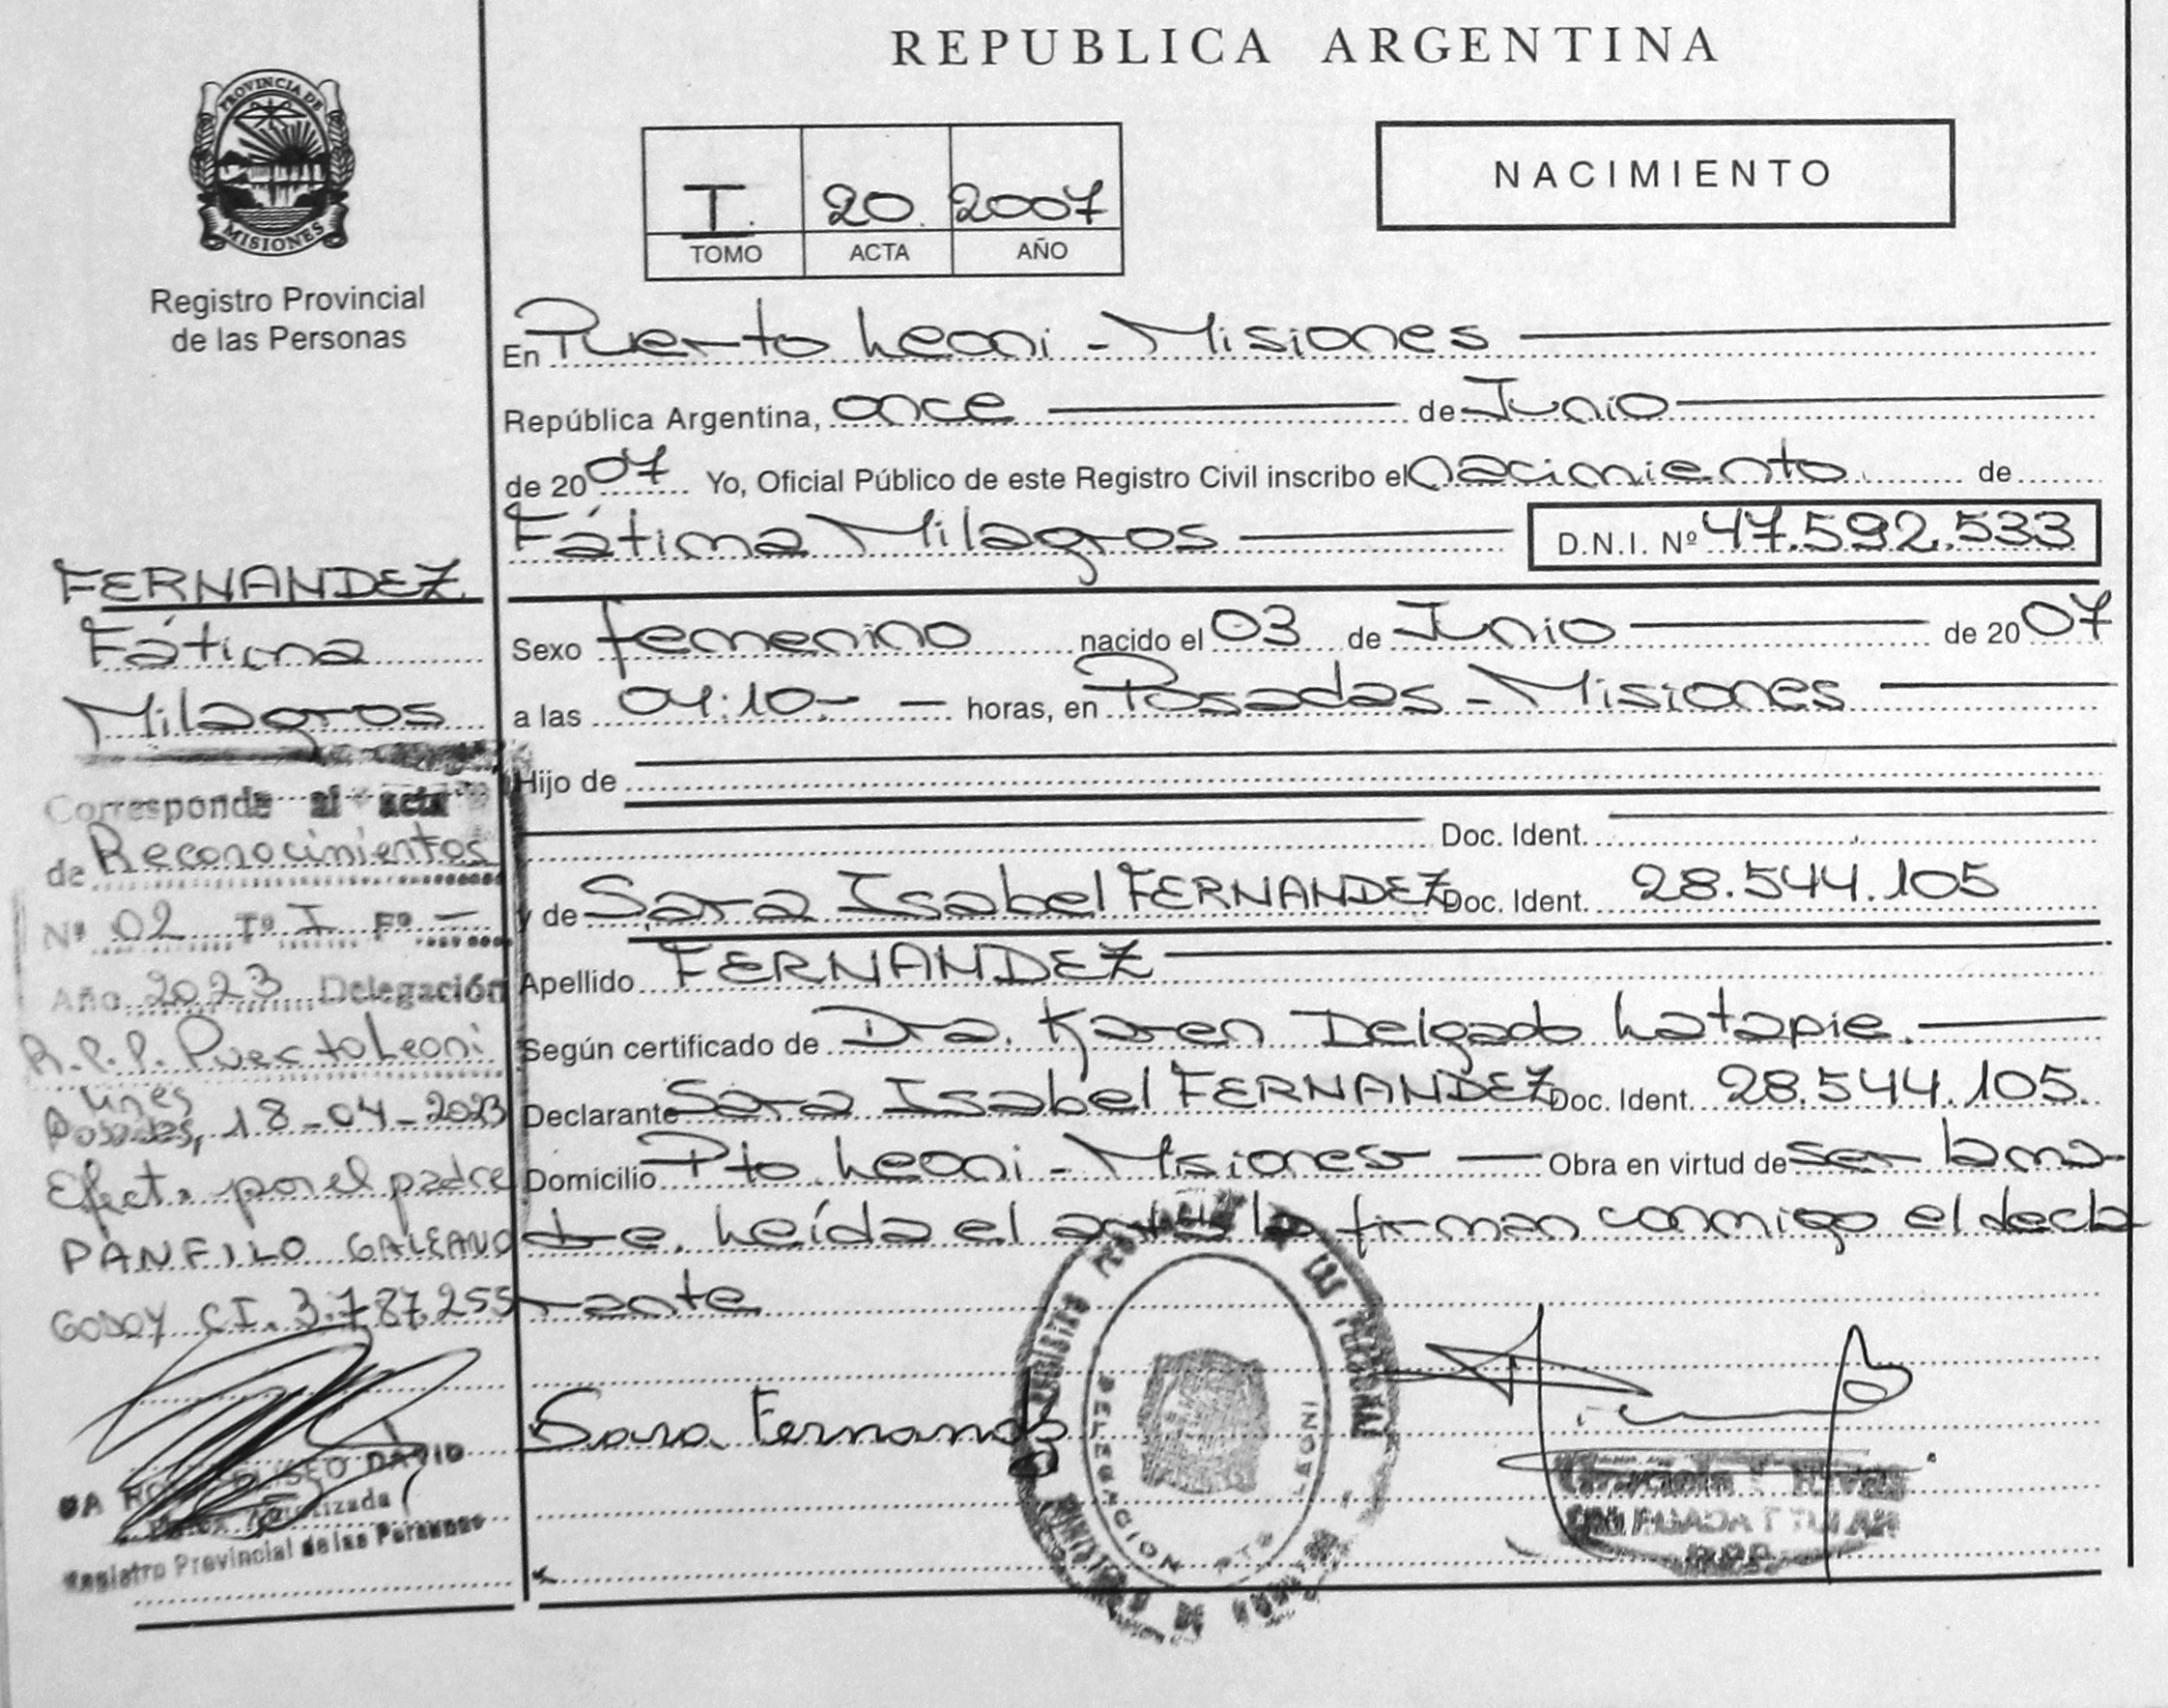 REPUBLICA ARGENTINA
PROVINCIA DE
MISIONES
Registro Provincial
de las Personas
I. 20. 2007
TOMO ACTA AÑO
NACIMIENTO
En Puerto Leoni - Misiones
República Argentina, once de Junio
de 2007 Yo, Oficial Público de este Registro Civil inscribo el nacimiento de
Fátima Milagros D.N.I. Nº 47.592.533
Sexo femenino nacido el 03 de Junio de 2007
a las 04:10.- horas, en Posadas - Misiones
Hijo de
Doc. Ident.
y de Sara Isabel FERNANDEZ Doc. Ident. 28.544.105
Apellido FERNANDEZ
Según certificado de Dra. Karen Delgado Latapie.
Declarante Sara Isabel FERNANDEZ Doc. Ident. 28.544.105.
Domicilio Pto. Leoni - Misiones Obra en virtud de ser la ma-
dre. Leída el acta la firman conmigo el decla
rante
Sara Fernandez
REGISTRO DE LAS PERSONAS
DELEGACION PTO LEONI
FERNANDEZ
Fátima
Milagros
Corresponde al acta
de Reconocimientos
Nº 02 Tº I Fº -
Año 2023 Delegación
R.P.P. Puerto Leoni
Mnes
Posadas, 18-04-2023
Efect. por el padre
PANFILO GALEANO
GODOY CI. 3.787.255
DAVID
Registro Provincial de las Personas